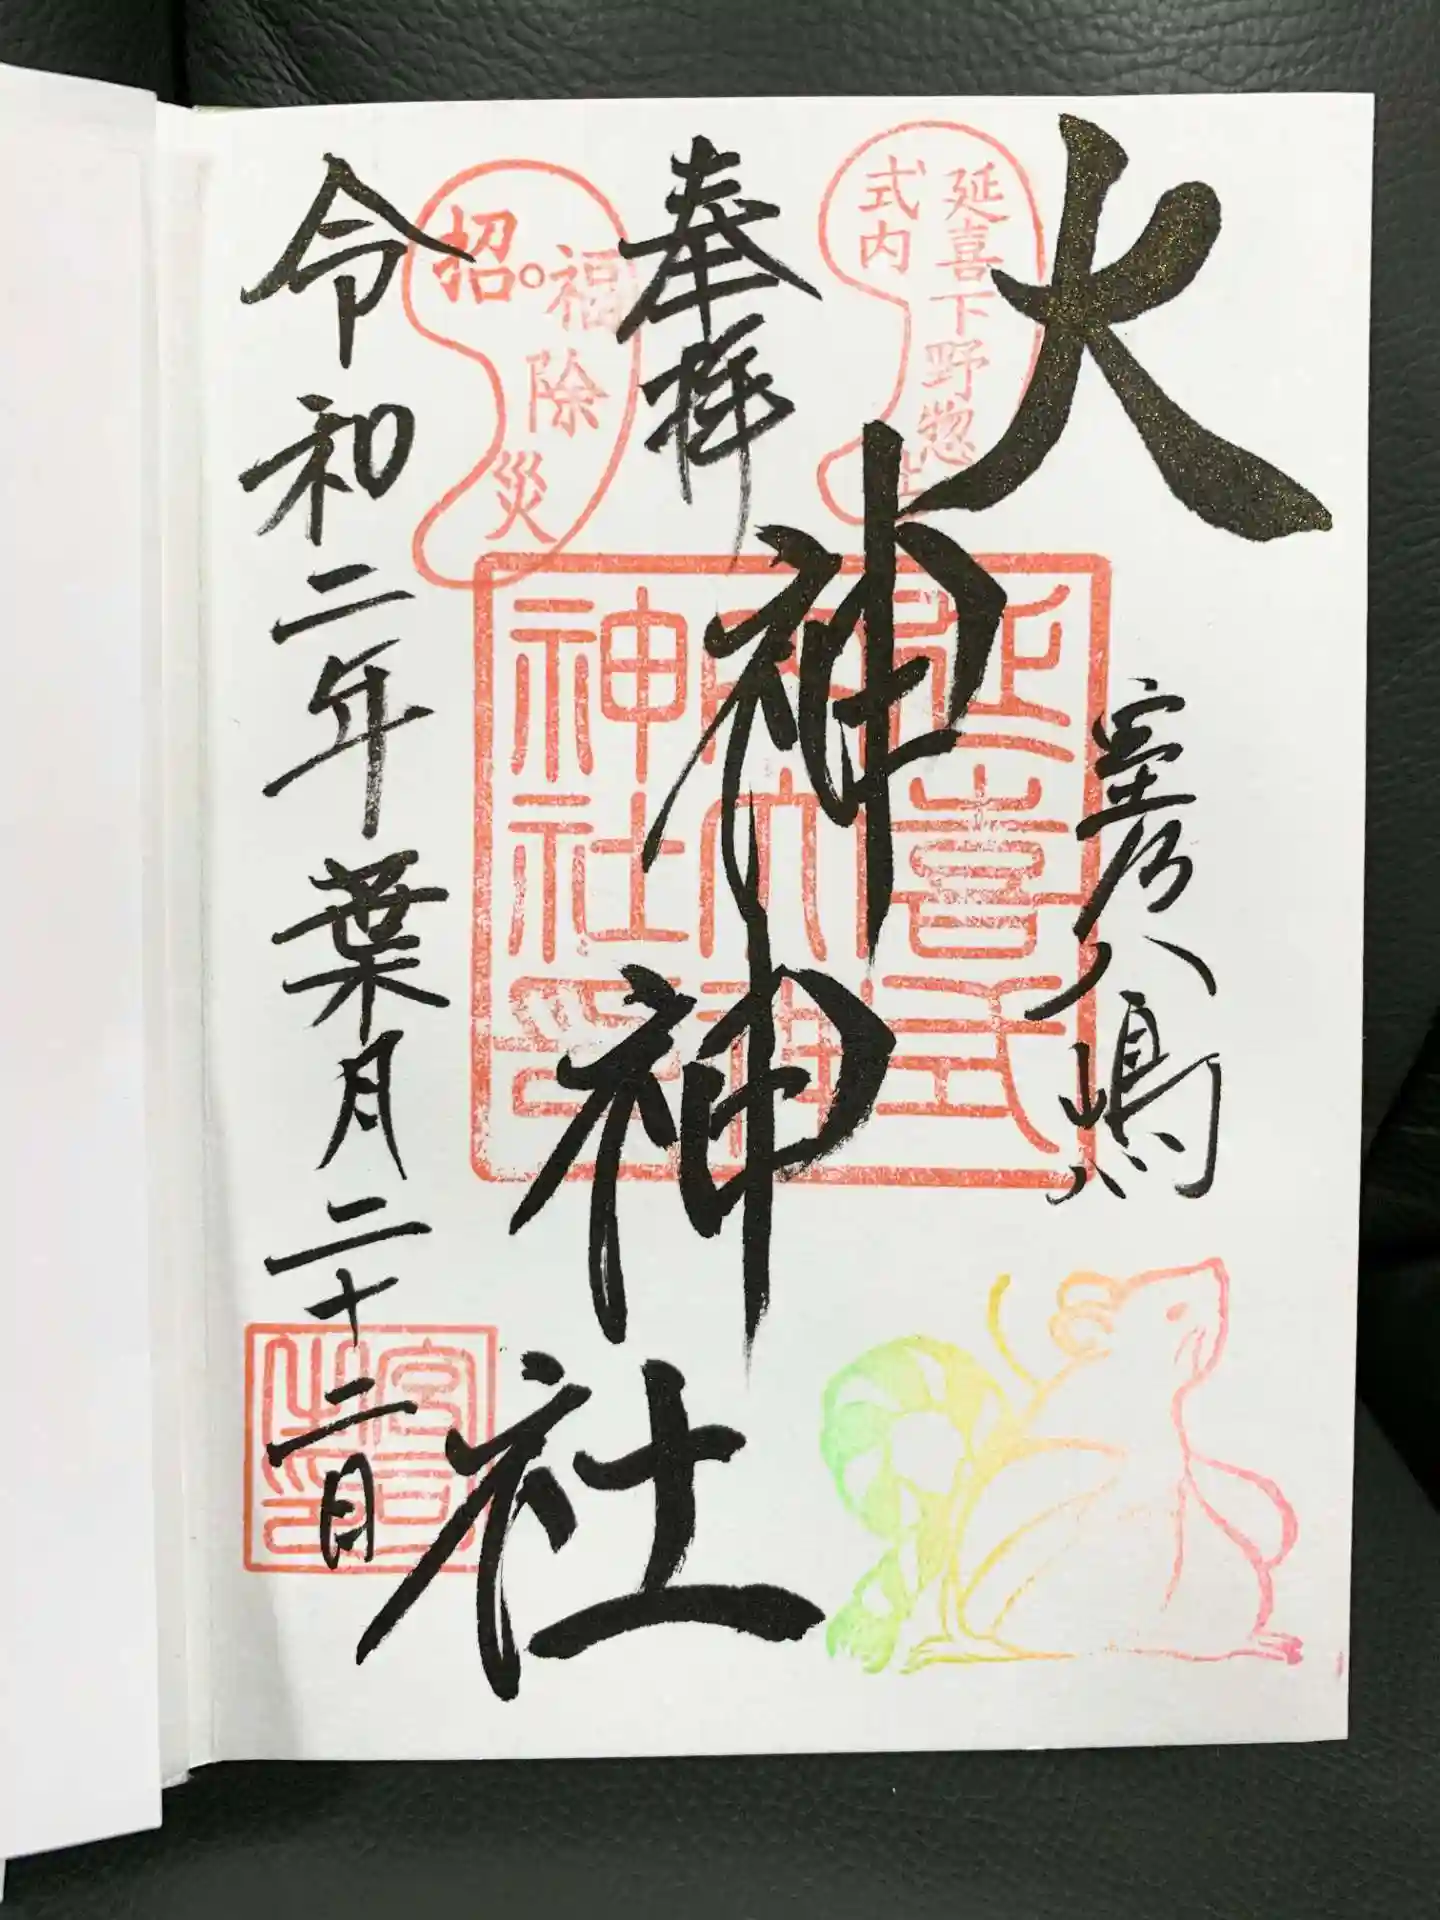 室乃八嶋
大神神社
延喜下野惣社
式内
奉拝
招福除災
延喜式
内大神
神社印
令和二年葉月二十二日
宮司
之印